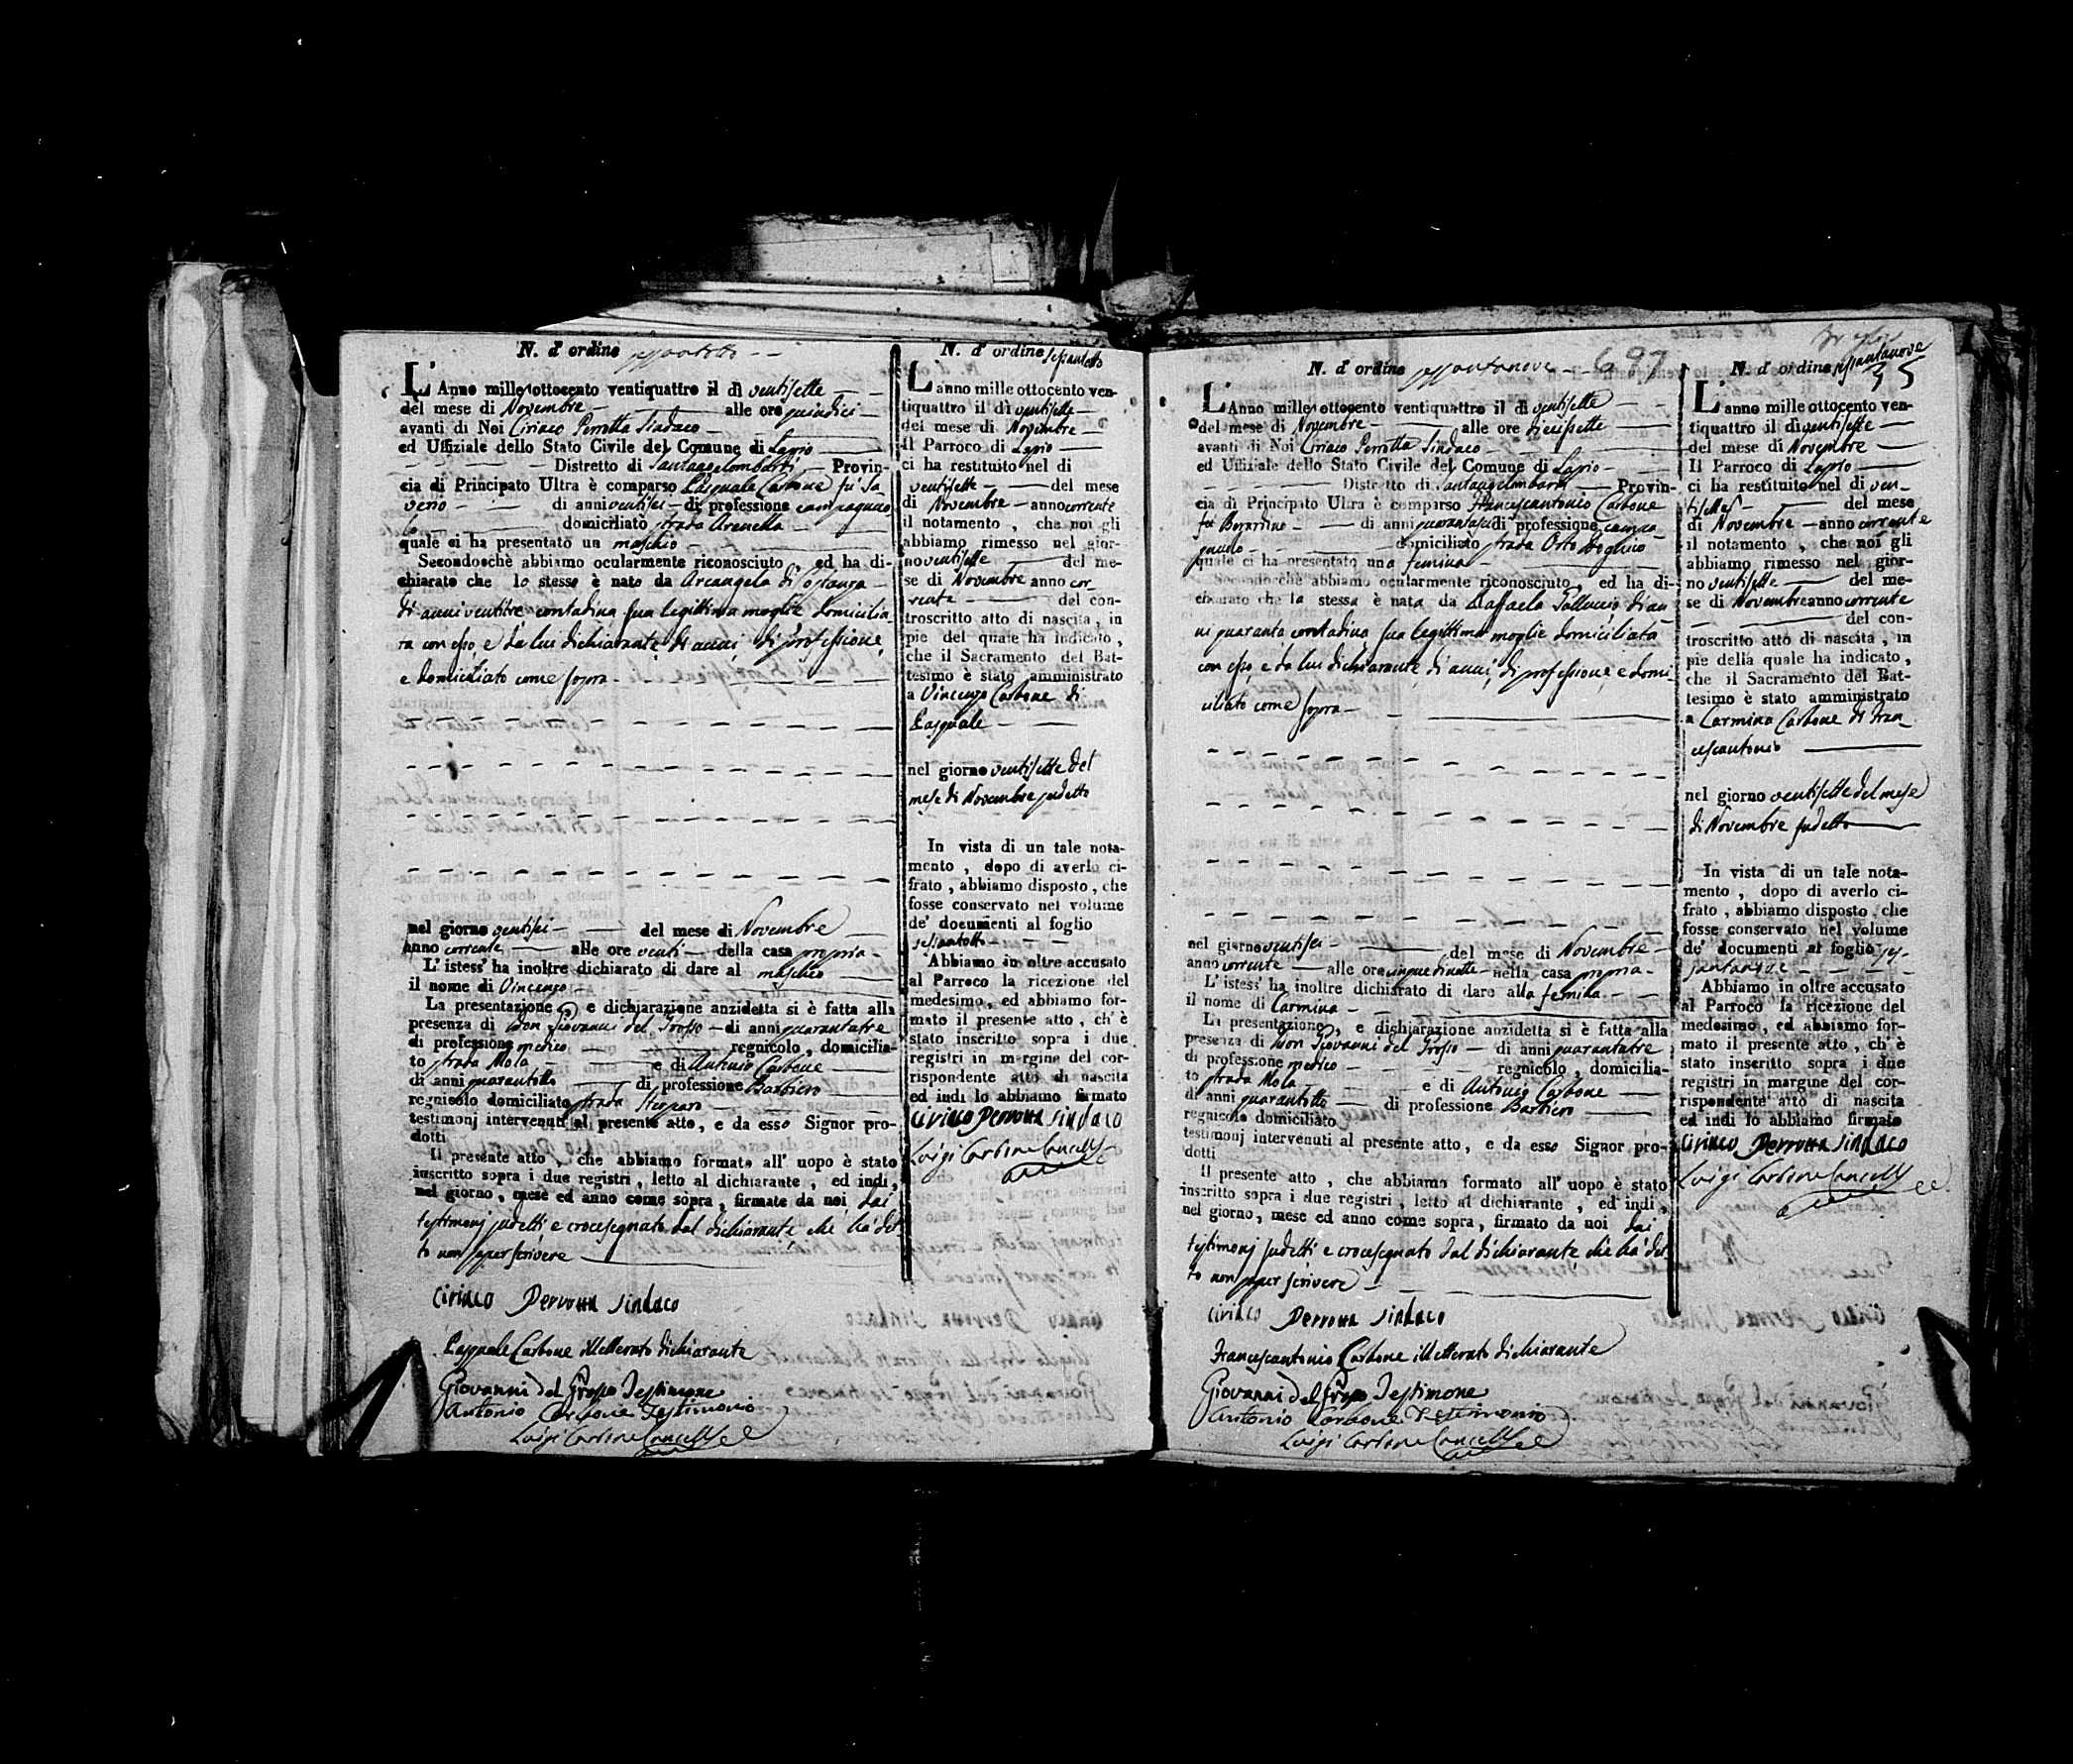 N. d' ordine sessantotto
L'Anno mille ottocento ventiquattro il dì ventisette
del mese di Novembre alle ore quindici
avanti di Noi Ciriaco Perrotta Sindaco
ed Uffiziale dello Stato Civile del Comune di Lapio
Distretto di Santangelombardi Provin-
cia di Principato Ultra è comparso Pasquale Carbone fu Sa
verio di anni ventisei di professione campagnuo
lo domiciliato strada Arenella
quale ci ha presentato un maschio
Secondochè abbiamo ocularmente riconosciuto , ed ha di-
chiarato che lo stesso è nato da Arcangela di
di anni ventitre, contadina sua legittima moglie domicilia
ta con esso, e da lui dichiarante, di anni, di professione,
e domiciliato come sopra
nel giorno ventisei del mese di Novembre
anno corrente alle ore venti della casa propria
L' istess' ha inoltre dichiarato di dare al maschio
il nome di Vincenzo
La presentazione , e dichiarazione anzidetta si è fatta alla
presenza di Don Giovanni del Grosso di anni quarantatre
di professione medico regnicolo , domicilia-
to strada Mola e di Antonio Carbone
di anni quarantotto di professione Barbiero
regnicolo domiciliato strada
testimonj intervenuti al presente atto , e da esso Signor pro-
dotti
Il presente atto , che abbiamo formato all' uopo è stato
inscritto sopra i due registri , letto al dichiarante , ed indi,
nel giorno , mese ed anno come sopra , firmato da noi dai
testimonj sudetti e crocesegnato dal dichiarante che ha det
to non saper scrivere
Ciriaco Perrotta Sindaco
Pasquale Carbone illetterato dichiarante
Giovanni del Grosso Testimone
Antonio Carbone Testimonio
Luigi Carbone Cancell
N. d' ordine sessantotto
L'anno mille ottocento ven-
tiquattro il dì ventisette
del mese di Novembre
Il Parroco di Lapio
ci ha restituito nel di
ventisette del mese
di Novembre anno corrente
il notamento , che noi gli
abbiamo rimesso nel gior-
no ventisette del me-
se di Novembre anno cor_
rente del con-
troscritto atto di nascita , in
piè del quale ha indicato ,
che il Sacramento del Bat-
tesimo è stato amministrato
a Vincenzo Carbone di
Pasquale
nel giorno ventisette del
mese di Novembre sudetto
In vista di un tale nota-
mento , dopo di averlo ci-
frato , abbiamo disposto , che
fosse conservato nel volume
de' documenti al foglio
sessantotto
Abbiamo in oltre accusato
al Parroco la ricezione del
medesimo , ed abbiamo for-
mato il presente atto , ch' è
stato inscritto sopra i due
registri in margine del cor-
rispondente atto di nascita
ed indi lo abbiamo firmato
Ciriaco Perrotta Sindaco
Luigi Carbone Cancell
N. d' ordine sessantanove 697
L'Anno mille ottocento ventiquattro il dì ventisette
del mese di Novembre alle ore diecisette
avanti di Noi Ciriaco Perrotta Sindaco
ed Uffiziale dello Stato Civile del Comune di Lapio
Distretto di Santangelombardi Provin-
cia di Principato Ultra è comparso Francescantonio Carbone
fu Berardino di anni quarantasei di professione campa
gnuolo domiciliato strada Orto
quale ci ha presentato una femina
Secondochè abbiamo ocularmente riconosciuto , ed ha di-
chiarato che la stessa è nata da Raffaela Galluccio di an
ni quaranta contadina sua legittima moglie domiciliata
con esso, e da lui dichiarante, di anni, di professione, e domi
ciliato come sopra
nel giorno ventisei del mese di Novembre
anno corrente alle ore cinque di notte nella casa propria
L' istess' ha inoltre dichiarato di dare alla femina
il nome di Carmina
La presentazione , e dichiarazione anzidetta si è fatta alla
presenza di Don Giovanni del Grosso di anni quarantatre
di professione medico regnicolo , domicilia-
to strada Mola e di Antonio Carbone
di anni quarantotto di professione Barbiero
regnicolo domiciliato
testimonj intervenuti al presente atto , e da esso Signor pro-
dotti
Il presente atto , che abbiamo formato all' uopo è stato
inscritto sopra i due registri , letto al dichiarante , ed indi ,
nel giorno , mese ed anno come sopra , firmato da noi dai
testimonj sudetti e crocesegnato dal dichiarante che ha det
to non saper scrivere
Ciriaco Perrotta Sindaco
Francescantonio Carbone illetterato dichiarante
Giovanni del Grosso Testimone
Antonio Carbone Testimonio
Luigi Carbone Cancell
N. d' ordine sessantanove
35
L'anno mille ottocento ven-
tiquattro il dì ventisette
del mese di Novembre
Il Parroco di Lapio
ci ha restituito nel di ven_
tisette del mese
di Novembre anno corrente
il notamento , che noi gli
abbiamo rimesso nel gior-
no ventisette del me-
se di Novembre anno corrente
del con-
troscritto atto di nascita , in
piè della quale ha indicato ,
che il Sacramento del Bat-
tesimo è stato amministrato
a Carmina Carbone di Fran_
cescantonio
nel giorno ventisette del mese
di Novembre sudetto
In vista di un tale nota-
mento , dopo di averlo ci-
frato , abbiamo disposto , che
fosse conservato nel volume
de' documenti al foglio ses-
santanove
Abbiamo in oltre accusato
al Parroco la ricezione del
medesimo , ed abbiamo for-
mato il presente atto , ch' è
stato inscritto sopra i due
registri in margine del cor-
rispondente atto di nascita
ed indi lo abbiamo firmato
Ciriaco Perrotta Sindaco
Luigi Carbone Cancell